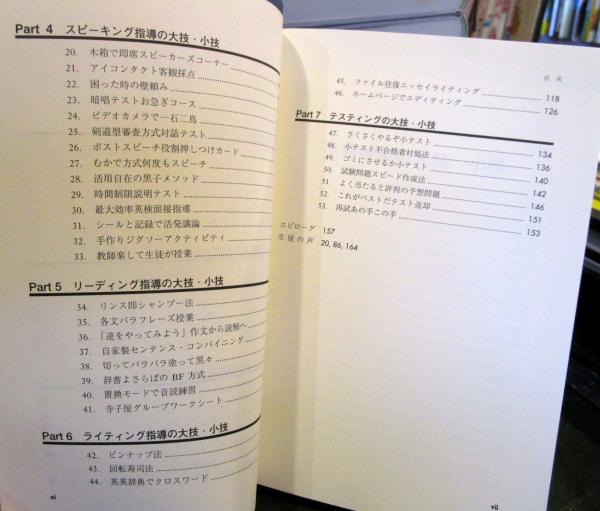 Part 4 スピーキング指導の大技・小技
20. 木箱で即席スピーカーズコーナー
21. アイコンタクト客観採点
22. 困った時の壁頼み
23. 暗唱テストお急ぎコース
24. ビデオカメラで一石二鳥
25. 剣道型審査方式対話テスト
26. ポストスピーチ役割押しつけカード
27. むかで方式何度もスピーチ
28. 活用自在の黒子メソッド
29. 時間制限説明テスト
30. 最大効率英検面接指導
31. シールと記録で活発議論
32. 手作りジグソーアクティビティ
33. 教師楽して生徒が授業
Part 5 リーディング指導の大技・小技
34. リンス即シャンプー法
35. 各文パラフレーズ授業
36. 「逆をやってみよう」作文から読解へ
37. 自家製センテンス・コンバイニング
38. 切ってバラバラ塗って黒々
39. 辞書よさらばの BF 方式
40. 置換モードで音読練習
41. 寺子屋グループワークシート
Part 6 ライティング指導の大技・小技
42. ピンナップ法
43. 回転寿司法
44. 英英辞典でクロスワード
vi
目 次
45. ファイル往復エッセイライティング 118
46. ホームページでエディティング 126
Part 7 テスティングの大技・小技
47. さくさくやるぞ小テスト 134
48. 小テスト不合格者対処法 136
49. ゴミにさせるか小テスト 140
50. 試験問題スピード作成法 142
51. よく当たると評判の予想問題 146
52. これがベストだテスト返却 151
53. 再試あの手この手 153
エピローグ 157
生徒の声 20, 86, 164
vii